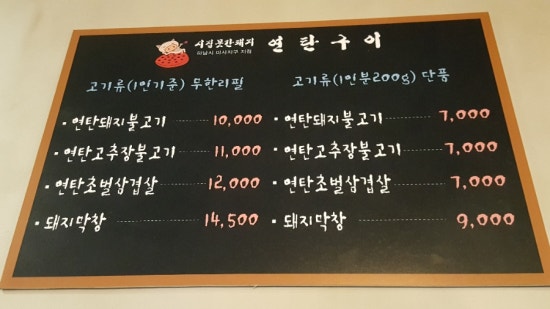 시집못간돼지 연탄구이
고기류(1인기준) 무한리필
연탄돼지불고기 10,000
연탄고추장불고기 11,000
연탄초벌삼겹살 12,000
돼지막창 14,500
고기류(1인분200g) 단품
연탄돼지불고기 7,000
연탄고추장불고기 7,000
연탄초벌삼겹살 7,000
돼지막창 9,000